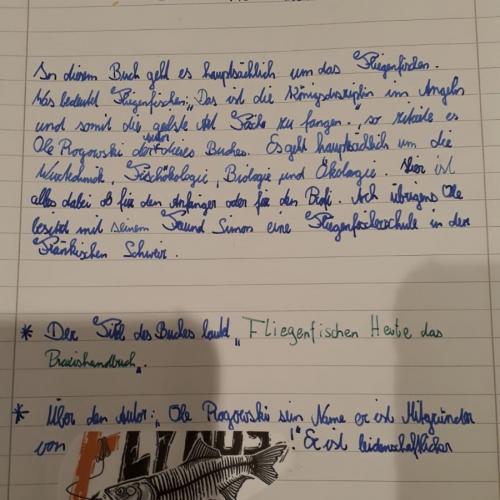 In diesem Buch geht es hauptsächlich um das Fliegenfischen.
Was bedeutet Fliegenfischen: „Das ist die Königsdisziplin im Angeln
und somit die geilste Art Fische zu fangen., so zitiete es
Ole Rogowski der Autor dieses Buches. Es geht hauptsächlich um die
Wurftechnik, Fischökologie, Biologie und Ökologie. Hier ist
alles dabei ob für den Anfänger oder für den Profi. Ach übrigens Ole
besitzt mit seinem Freund Simon eine Fliegenfischerschule in der
Fränkischen Schweiz.
* Der Titel des Buches lautet „Fliegenfischen Heute das
Praxishandbuch“.
* Über den Autor: „Ole Rogowski sein Name er ist Mitgründer
von !“ Er ist leidenschaftlicher